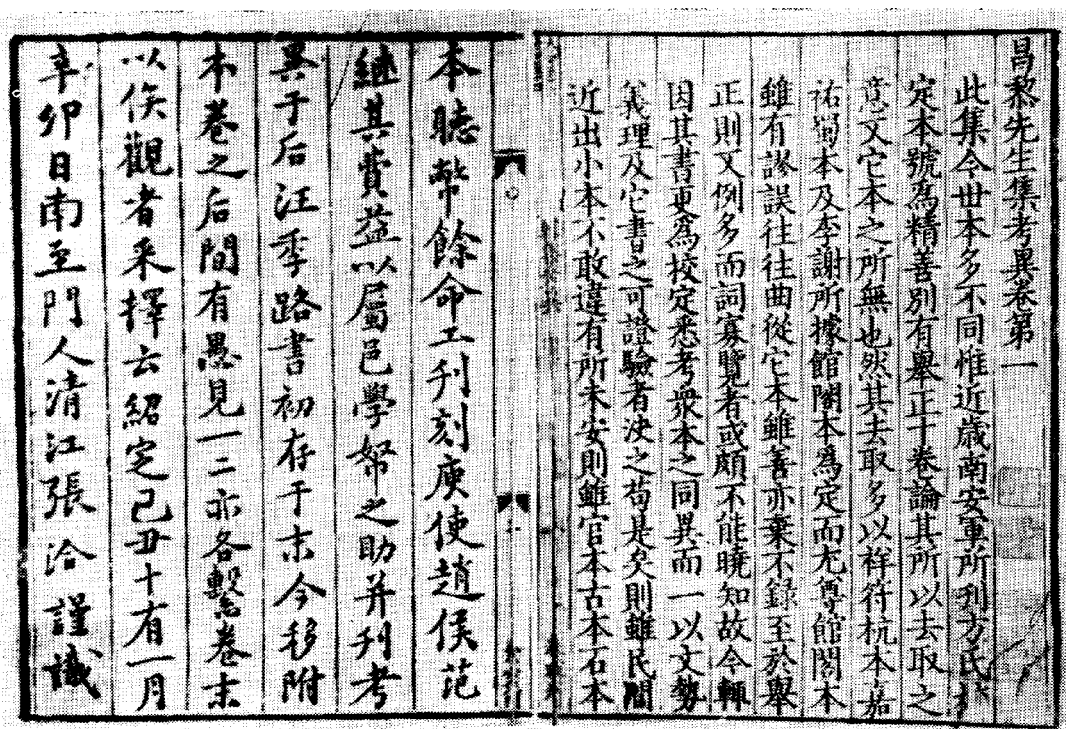 昌黎先生集考異卷第一
此集今世本多不同惟近歲南安軍所刊方氏校
定本號爲精善別有舉正十卷論其所以去取之
意又它本之所無也然其去取多以祥符杭本嘉
祐蜀本及李謝所據館閣本爲定而尤尊館閣本
雖有謬誤往往曲從它本雖善亦棄不錄至於舉
正則又例多而詞寡覽者或頗不能曉知故今輒
因其書更爲挍定悉考衆本之同異而一以文勢
義理及它書之可證驗者决之苟是矣則雖民間
近出小本不敢違有所未安則雖官本古本石本
本聽幣餘命工刋刻庾使趙侯范
繼其費益以屬邑學帑之助并刋考
異于后汪季路書初存于末今移附
本卷之后間有愚見一二亦各繫卷末
以俟觀者采擇云紹定己丑十有一月
辛卯日南至門人清江張洽謹識